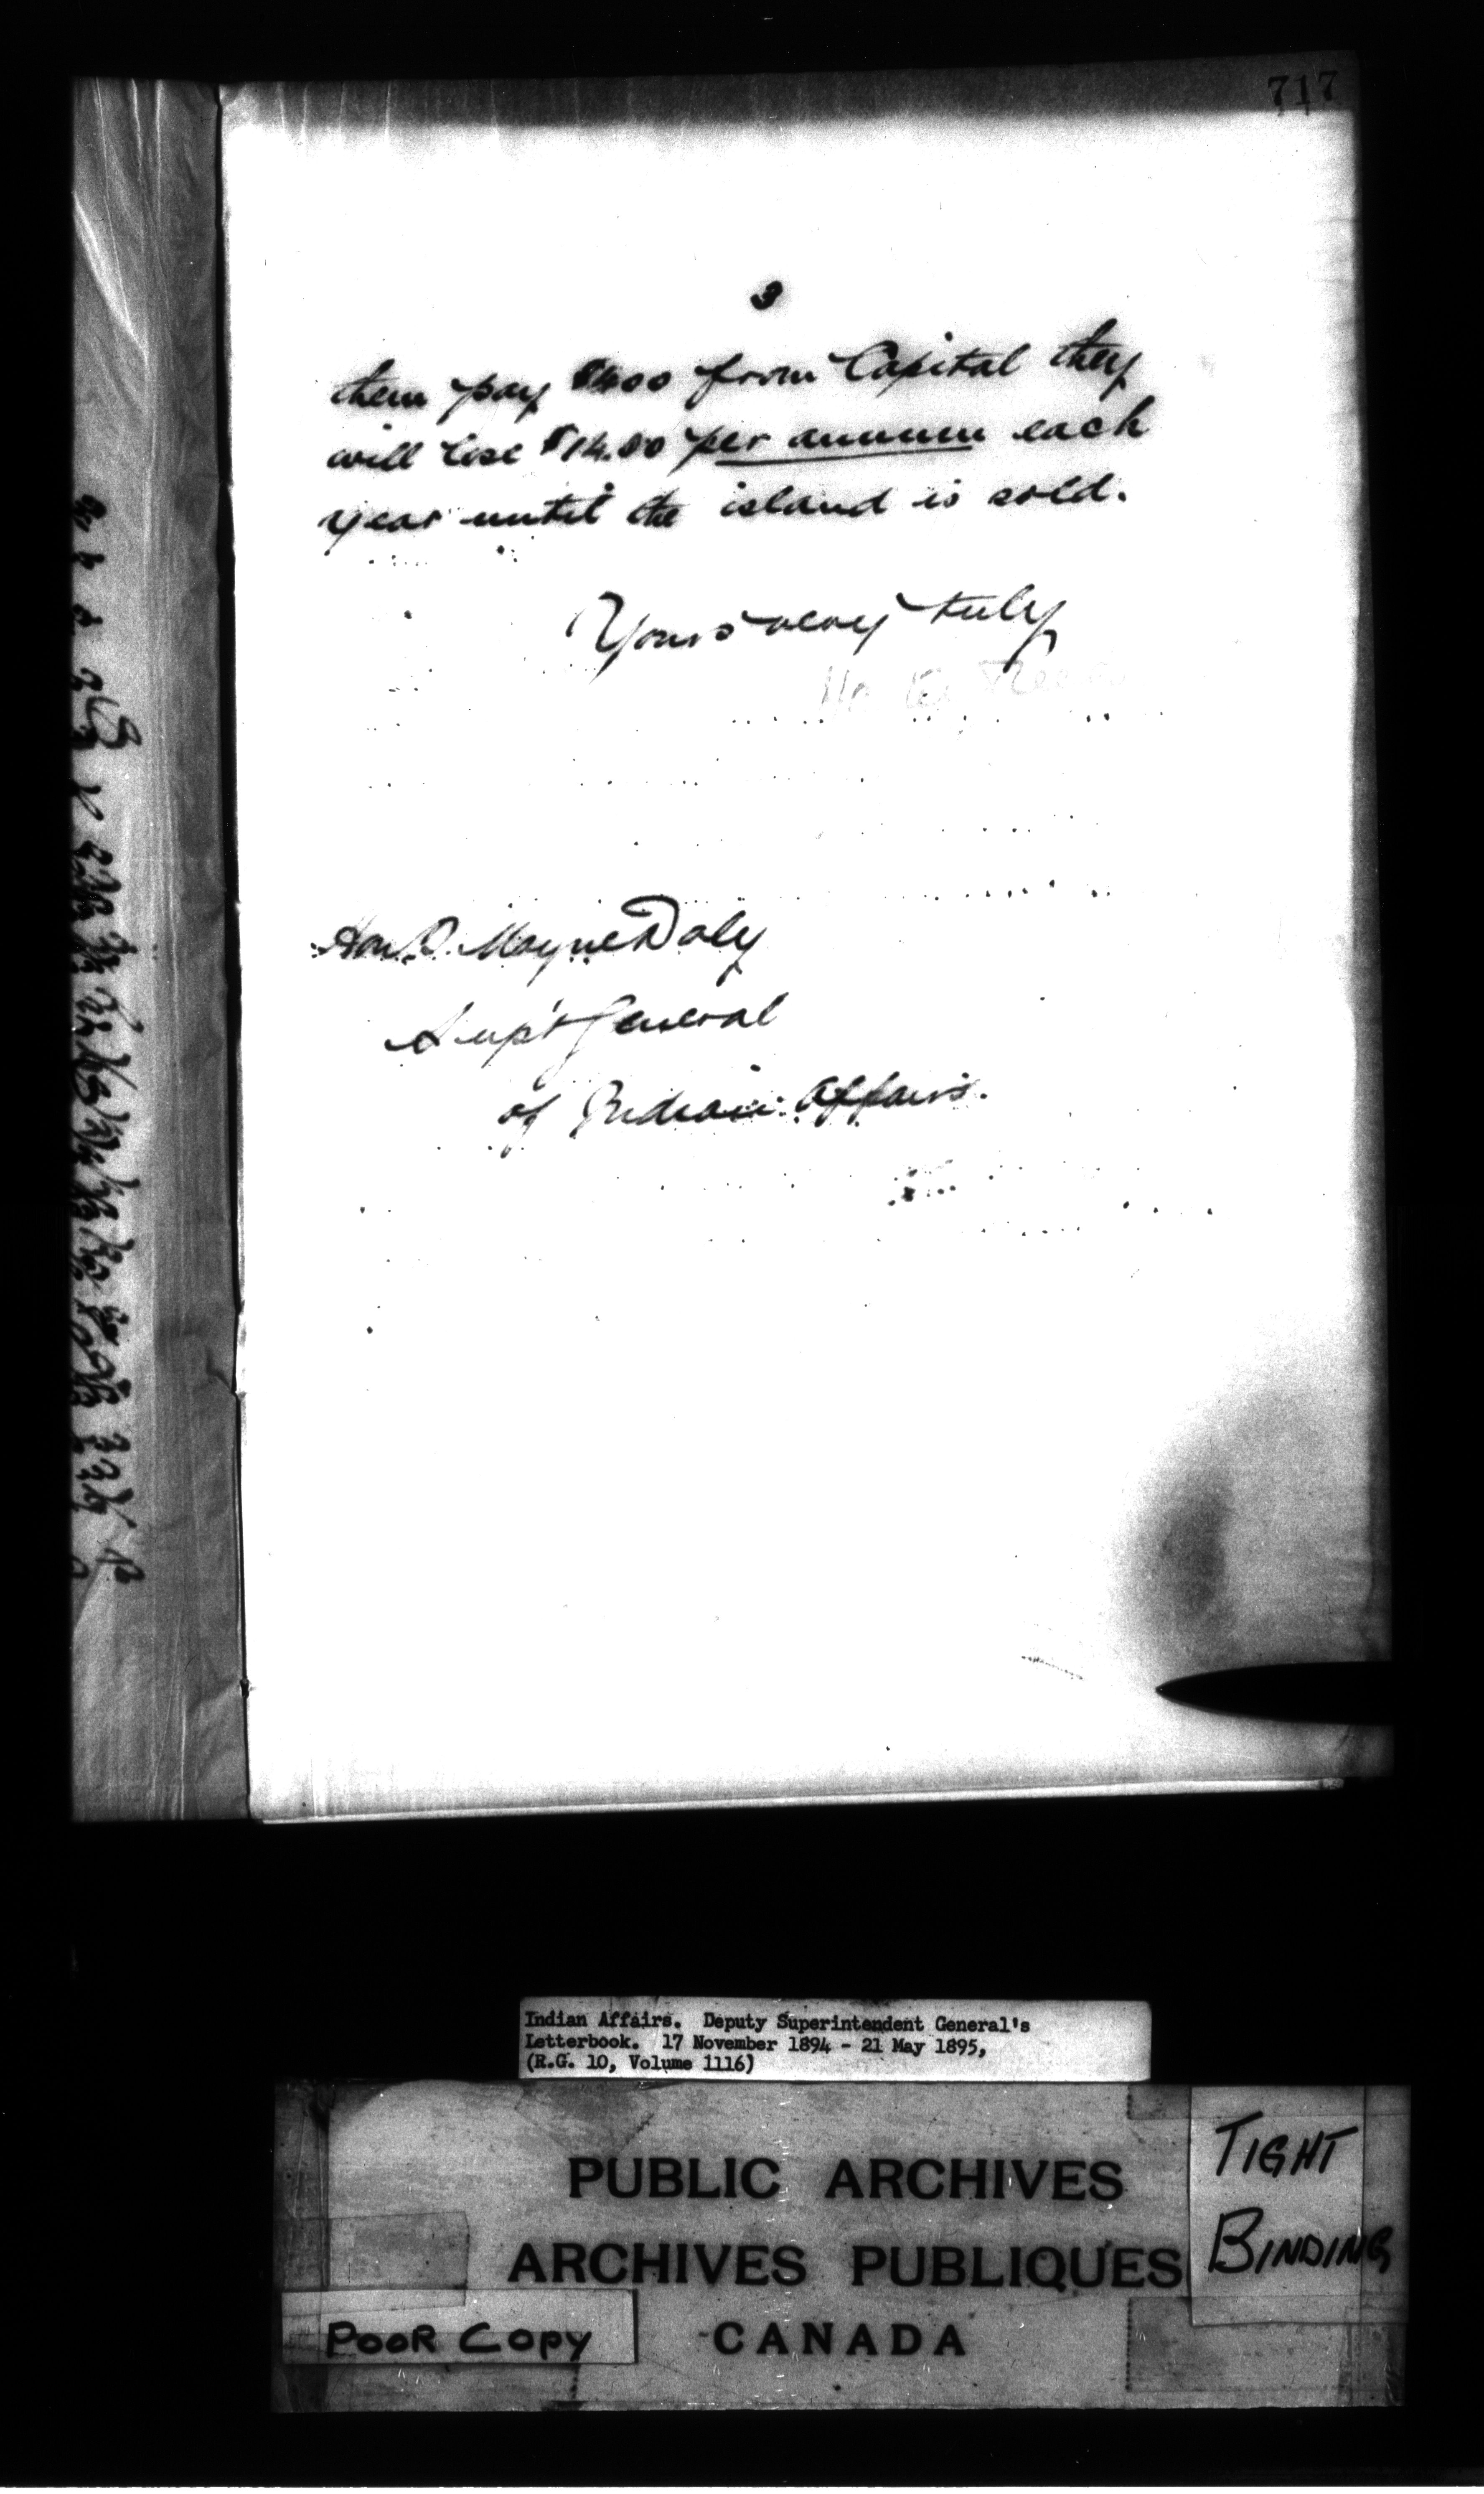 717
3
them pay $400 from Capital they
will lose $14.00 per annum each
year until the island is sold.
Yours very truly
Hon. T. Mayne Daly
Sup't General
of Indian Affairs.
Indian Affairs. Deputy Superintendent General's
Letterbook. 17 November 1894 - 21 May 1895,
(R.G. 10, Volume 1116)
PUBLIC ARCHIVES
ARCHIVES PUBLIQUES
CANADA
TIGHT
BINDING
POOR COPY